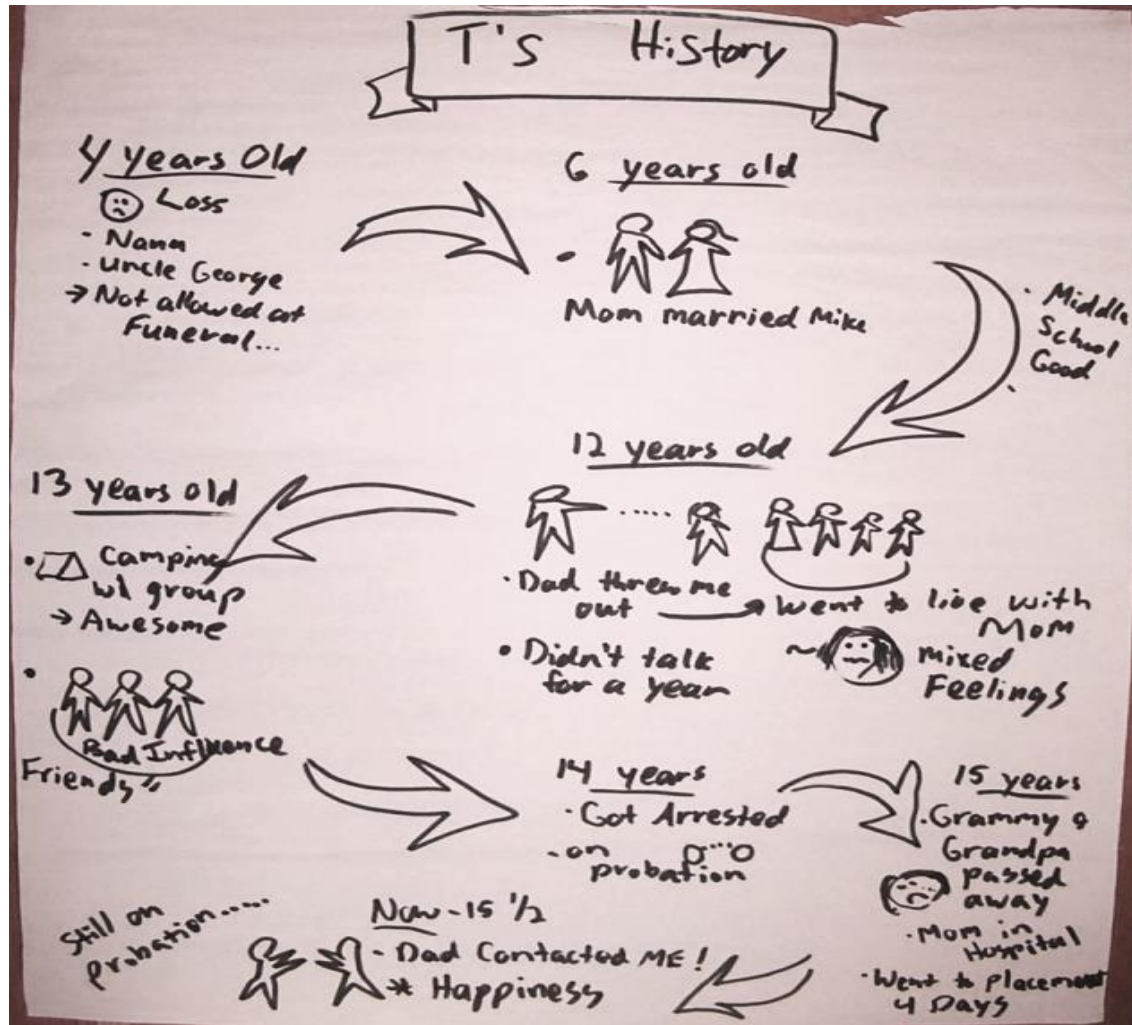 T's History
4 years Old
Loss
· Nana
· Uncle George
→ Not allowed at
Funeral...
6 years old
Mom married Mike
· Middle
School
Good
12 years old
· Dad threw me
out → Went to live with
Mom
mixed
Feelings
· Didn't talk
for a year
13 years old
· Camping
w/ group
→ Awesome
Bad Influence
Friends"
14 years
· Got Arrested
- on
probation
15 years
· Grammy &
Grandpa
passed
away
· Mom in
Hospital
· Went to placement
4 Days
Now - 15 1/2
- Dad Contacted ME!
* Happiness
Still on
probation.....